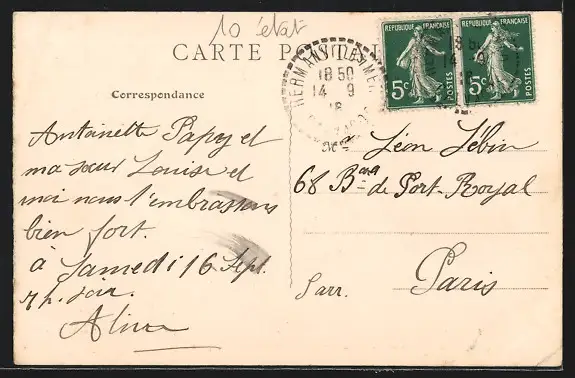 10 état
CARTE P
REPUBLIQUE FRANÇAISE
5c POSTES
REPUBLIQUE FRANÇAISE
5c POSTES
HERMANVILLE
18 50
14 9
18
Correspondance
Antoinette Papy et
ma sœur Louise et
moi nous t'embrassons
bien fort.
à Samedi 16 Sept.
7 h. soir.
Aline
Léon Lébin
68 Bard de Port-Royal
Paris